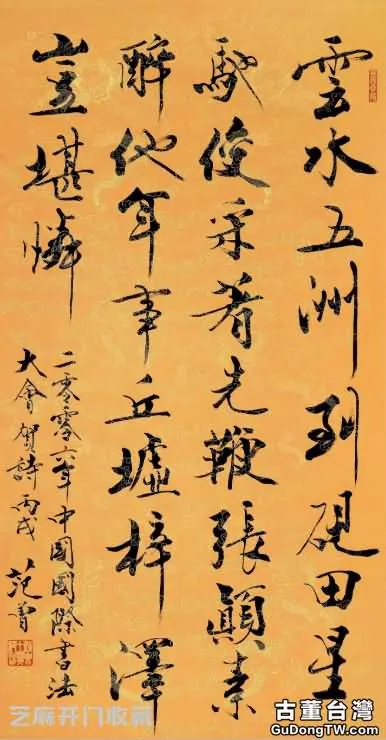 雲水五洲到硯田星
馳俊采着先鞭張顛素
醉他年事丘墟梓澤
豈堪憐
二零零六年中國國際書法
大會賀詩丙戌 范曾
芝麻开门收藏
古董台灣
GuDongTW.com